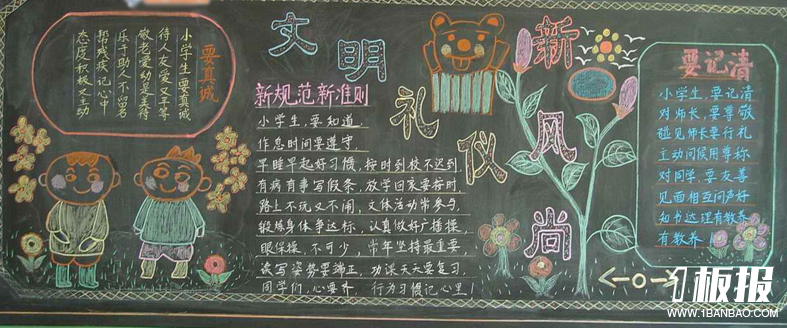 要真诚
小学生要真诚
待人友爱又平等
敬老爱幼是美德
乐于助人不留名
帮残疾记心中
态度积极又主动
文明礼仪
新风尚
新规范新准则
小学生,要知道,
作息时间要遵守,
早睡早起好习惯,按时到校不迟到.
有病有事写假条,放学回家要按时,
路上不玩又不闹,文体活动常参与,
锻炼身体争达标,认真做好广播操,
眼保操,不可少,常年坚持最重要,
读写姿势要端正,功课天天要复习.
同学们,心要齐,行为习惯记心里!
要记清
小学生,要记清
对师长,要尊敬
碰见师长要行礼
主动问候用尊称
对同学,要友善
见面相互问声好
知书达理有教养
有教养!
1板报
WWW.1BANBAO.COM